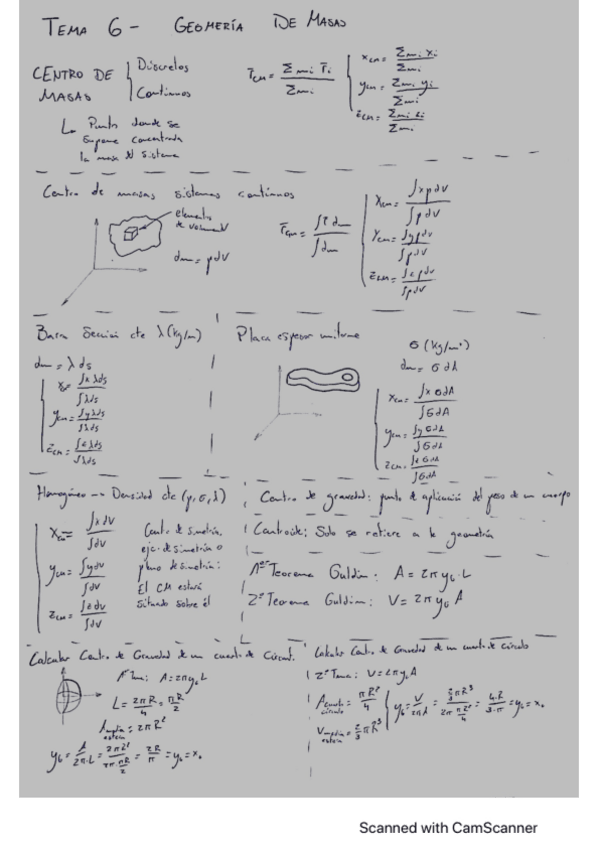 TEMA 6 - GEOMETRÍA DE MASAS
CENTRO DE MASAS { Discretos
Continuos
r̄cm = Σmi r̄i / Σmi
xcm = Σmi xi / Σmi
ycm = Σmi yi / Σmi
zcm = Σmi zi / Σmi
Punto donde se
supone concentrada
la masa del sistema
Centro de masas sistemas continuos
elemento
de volumen
dm = ρdV
r̄cm = ∫r̄ dm / ∫dm
xcm = ∫xρdV / ∫ρdV
ycm = ∫yρdV / ∫ρdV
zcm = ∫zρdV / ∫ρdV
Barra sección cte λ(kg/m)
dm = λ ds
x = ∫xλds / ∫λds
ycm = ∫yλds / ∫λds
zcm = ∫zλds / ∫λds
Placa espesor uniforme
σ (kg/m²)
dm = σ dA
xcm = ∫x σdA / ∫σdA
ycm = ∫y σdA / ∫σdA
zcm = ∫z σdA / ∫σdA
Homogéneo → Densidad cte (ρ, σ, λ)
xcm = ∫xdV / ∫dV
ycm = ∫ydV / ∫dV
zcm = ∫zdV / ∫dV
Centro de simetría,
eje de simetría o
plano de simetría:
El CM estará
situado sobre él
Centro de gravedad: punto de aplicación del peso de un cuerpo
Centroide: Solo se refiere a la geometría
1er Teorema Guldin: A = 2π yG · L
2º Teorema Guldin: V = 2π yG A
Calcular Centro de Gravedad de un cuarto de Circunf.
1er Tma: A = 2π yG L
L = 2πR / 4 = πR / 2
A media esfera = 2πR²
yG = A / 2π·L = 2πR² / 2π·πR/2 = 2R / π = yG = xG
Calcular Centro de Gravedad de un cuarto de círculo
2º Tma: V = 2π yG A
A cuarto círculo = πR² / 4
V media esfera = 2/3 πR³
yG = V / 2πA = 2/3 πR³ / 2π πR²/4 = 4·R / 3·π = yG = xG
Scanned with CamScanner